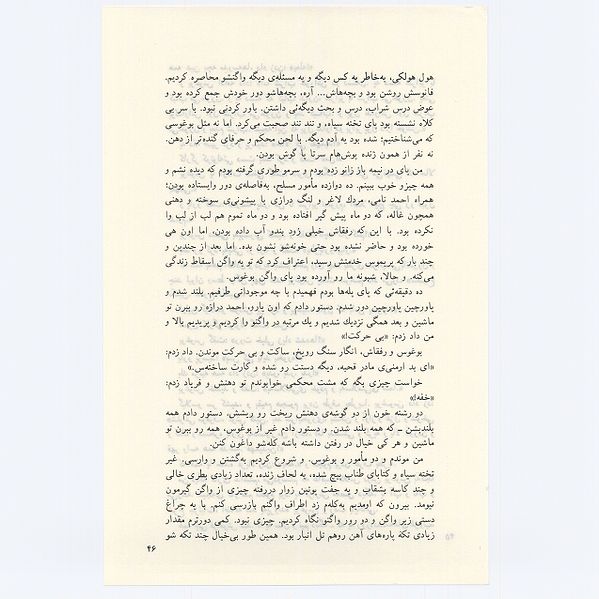 هول هولکی، به‌خاطر یه کس دیگه و یه مسئله‌ی دیگه واگنشو محاصره کردیم.
فانوسش روشن بود و بچه‌هاش... آره، بچه‌هاشو دور خودش جمع کرده بود و
عوض درس شراب، درس و بحث دیگه‌ئی داشتن. باور کردنی نبود. با سر بی
کلاه نشسته بود پای تخته سیاه، و تند تند صحبت می‌کرد. اما نه مثل بوغوسی
که می‌شناختیم؛ شده بود یه آدم دیگه. با لحن محکم و حرفای گنده‌تر از دهن.
نه نفر از همون زنده پوش‌هام سرتا پا گوش بودن.
من پای در نیمه باز زانو زده بودم و سرمو طوری گرفته بودم که دیده نشم و
همه چیزو خوب ببینم. ده دوازده مأمور مسلح، به‌فاصله‌ی دور وایستاده بودن؛
همراه احمد نامی، مردك لاغر و لنگ درازی با پیشونی‌ی سوخته و دهنی
همچون غاله، که دو ماه پیش گیر افتاده بود و دو ماه تموم هم لب از لب وا
نکرده بود. با این که رفقاش خیلی زود بندو آب داده بودن، اما اون هی
خورده بود و حاضر نشده بود حتی خونه‌شو نشون بده. اما بعد از چندین و
چند بار که پریموس خدمتش رسید، اعتراف کرد که تو یه واگن اسقاط زندگی
می‌کنه. و حالا، شبونه ما رو آورده بود پای واگن بوغوس.
ده دقیقه‌ئی که پای پله‌ها بودم فهمیدم با چه موجوداتی طرفیم. بلند شدم و
پاورچین پاورچین دور شدم. دستور دادم که اون یارو، احمد درازه رو ببرن تو
ماشین و بعد همگی نزدیك شدیم و یك مرتبه در واگنو وا کردیم و پریدیم بالا و
من داد زدم: «بی حرکت!»
بوغوس و رفقاش، انگار سنگ رویخ، ساکت و بی حرکت موندن. داد زدم:
«ای بد ارمنی‌ی مادر قحبه، دیگه دستت رو شده و کارت ساخته‌س.»
خواست چیزی بگه که مشت محکمی خوابوندم تو دهنش و فریاد زدم:
«خفه!»
دو رشته خون از دو گوشه‌ی دهنش ریخت رو ریشش، دستور دادم همه
بلندبشن ـ که همه بلند شدن. و دستور دادم غیر از بوغوس، همه رو ببرن تو
ماشین و هر کی خیال در رفتن داشته باشه کله‌شو داغون کنن.
من موندم و دو مأمور و بوغوس. و شروع کردیم به‌گشتن و وارسی. غیر
تخته سیاه و کتابای طناب پیچ شده، یه لحاف ژنده، تعداد زیادی بطری خالی
و چند کاسه بشقاب و یه جفت پوتین زوار دررفته چیزی از واگن گیرمون
نیومد. بیرون که اومدیم به‌کله‌م زد اطراف واگنم بازرسی کنم. با یه چراغ
دستی زیر واگن و دو رور واگنو نگاه کردیم. چیزی نبود. کمی دورترم مقدار
زیادی تکه پاره‌های آهن روهم تل انبار بود. همین طور بی‌خیال چند تکه شو
۴۶